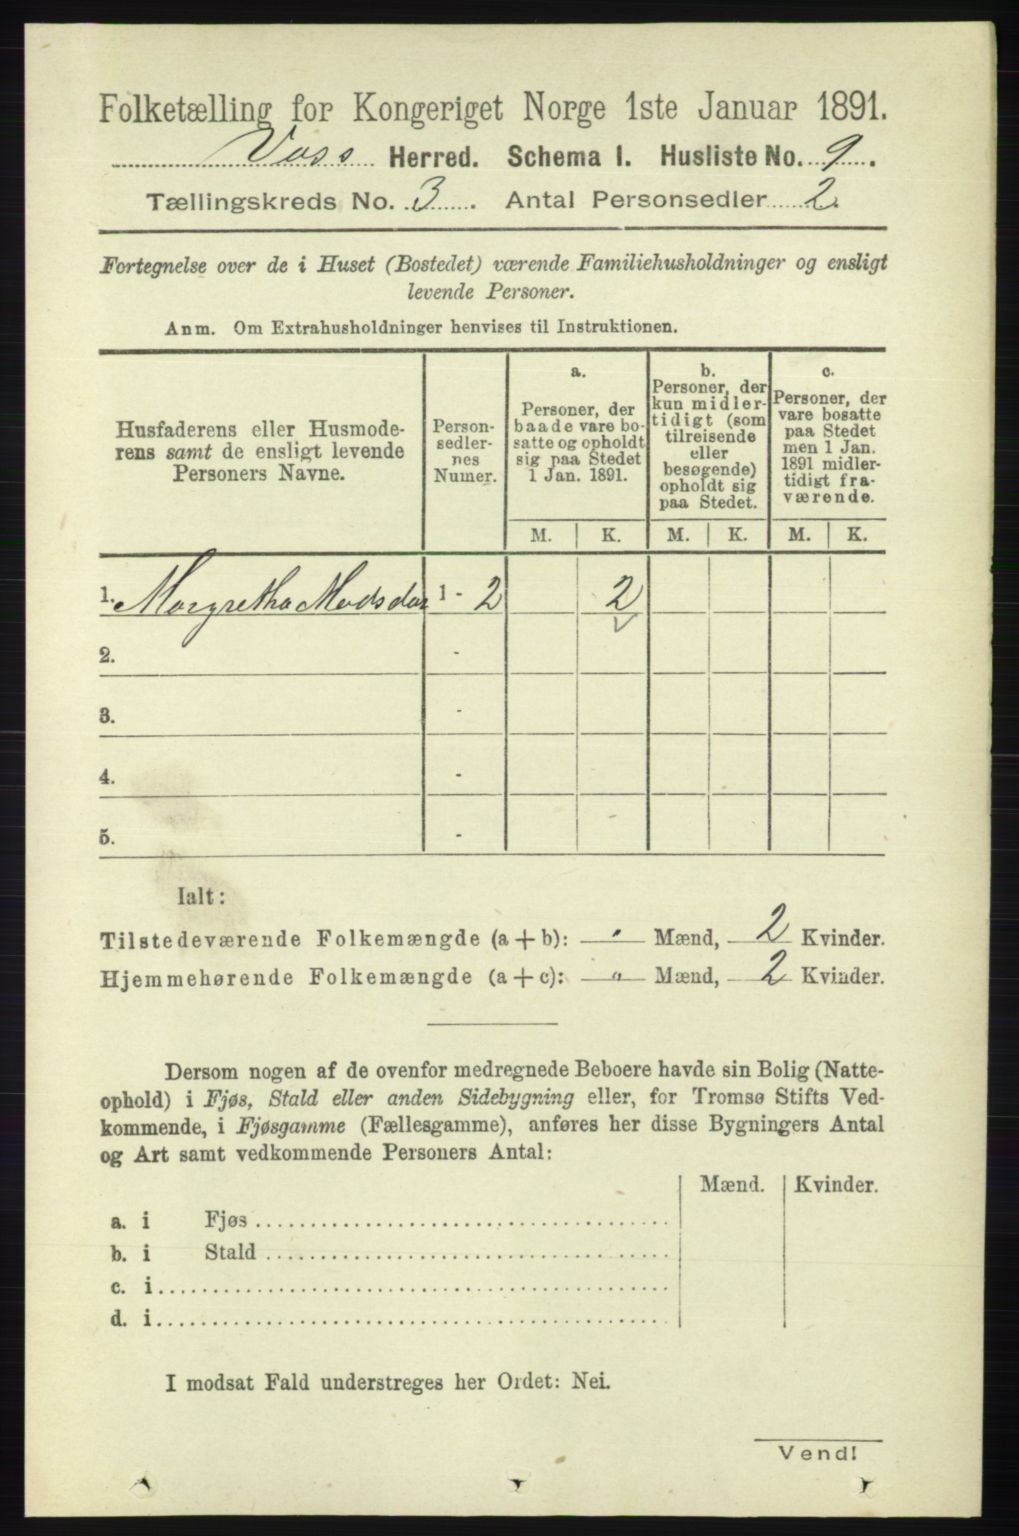 Folketælling for Kongeriget Norge 1ste Januar 1891.
Voss Herred. Schema I. Husliste No. 9.
Tællingskreds No. 3. Antal Personsedler 2.
Fortegnelse over de i Huset (Bostedet) værende Familiehusholdninger og ensligt
levende Personer.
Anm. Om Extrahusholdninger henvises til Instruktionen.
Husfaderens eller Husmode-
rens samt de ensligt levende
Personers Navne.
Person-
sedler-
nes
Numer.
a.
Personer, der
baade vare bo-
satte og opholdt
sig paa Stedet
1 Jan. 1891.
b.
Personer, der
kun midler-
tidigt (som
tilreisende
eller
besøgende)
opholdt sig
paa Stedet.
c.
Personer, der
vare bosatte
paa Stedet
men 1 Jan.
1891 midler-
tidigt fra-
værende.
M. K. M. K. M. K.
1. Margretha Madsdat 1 - 2 2
2. -
3. -
4. -
5. -
Ialt:
Tilstedeværende Folkemængde (a+b): " Mænd, 2 Kvinder.
Hjemmehørende Folkemængde (a+c): " Mænd, 2 Kvinder.
Dersom nogen af de ovenfor medregnede Beboere havde sin Bolig (Natte-
ophold) i Fjøs, Stald eller anden Sidebygning eller, for Tromsø Stifts Ved-
kommende, i Fjøsgamme (Fællesgamme), anføres her disse Bygningers Antal
og Art samt vedkommende Personers Antal:
Mænd. Kvinder.
a. i Fjøs
b. i Stald
c. i
d. i
I modsat Fald understreges her Ordet: Nei.
Vend!